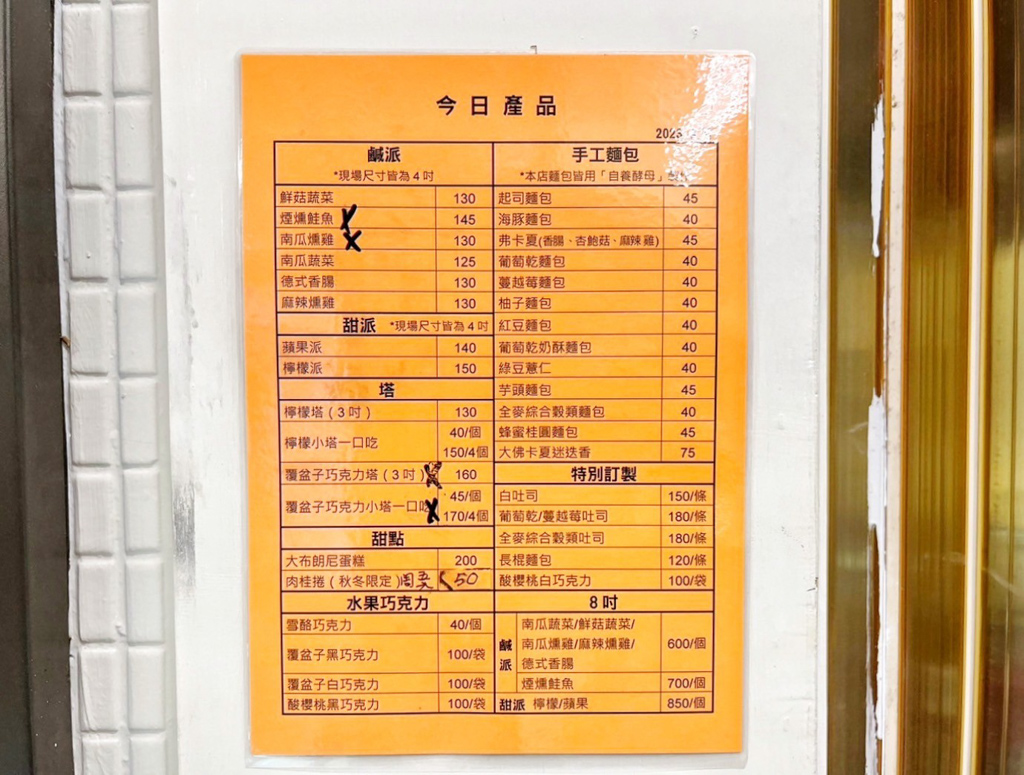 今日產品
鹹派
*現場尺寸皆為4吋
鮮菇蔬菜 130
煙燻鮭魚 X 145
南瓜燻雞 X 130
南瓜蔬菜 125
德式香腸 130
麻辣燻雞 130
甜派 *現場尺寸皆為4吋
蘋果派 140
檸檬派 150
塔
檸檬塔(3吋) 130
檸檬小塔一口吃 40/個
150/4個
覆盆子巧克力塔(3吋) 160
覆盆子巧克力小塔一口吃 X 45/個
170/4個
甜點
大布朗尼蛋糕 200
肉桂捲(秋冬限定) 50
水果巧克力
雪酪巧克力 40/個
覆盆子黑巧克力 100/袋
覆盆子白巧克力 100/袋
酸櫻桃黑巧克力 100/袋
手工麵包
*本店麵包皆用「自養酵母」
起司麵包 45
海豚麵包 40
弗卡夏(香腸、杏鮑菇、麻辣雞) 45
葡萄乾麵包 40
蔓越莓麵包 40
柚子麵包 40
紅豆麵包 40
葡萄乾奶酥麵包 40
綠豆薏仁 40
芋頭麵包 45
全麥綜合穀類麵包 40
蜂蜜桂圓麵包 45
大佛卡夏迷迭香 75
特別訂製
白吐司 150/條
葡萄乾/蔓越莓吐司 180/條
全麥綜合穀類吐司 180/條
長棍麵包 120/條
酸櫻桃白巧克力 100/袋
8吋
鹹派
南瓜蔬菜/鮮菇蔬菜/
南瓜燻雞/麻辣燻雞/ 600/個
德式香腸
煙燻鮭魚 700/個
甜派 檸檬/蘋果 850/個